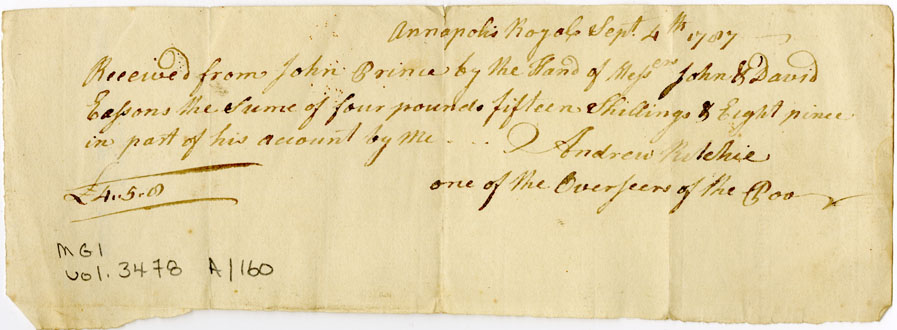 Annapolis Royal Sept. 4th 1787
Received from John Prince by the Hand of Messrs John & David
Eassons the Sume of four pounds fifteen Shillings & Eight pince
in part of his account by Me
Andrew Ritchie
£4.5.8
one of the Overseers of the Poor
MG1
Vol. 3478 A/160